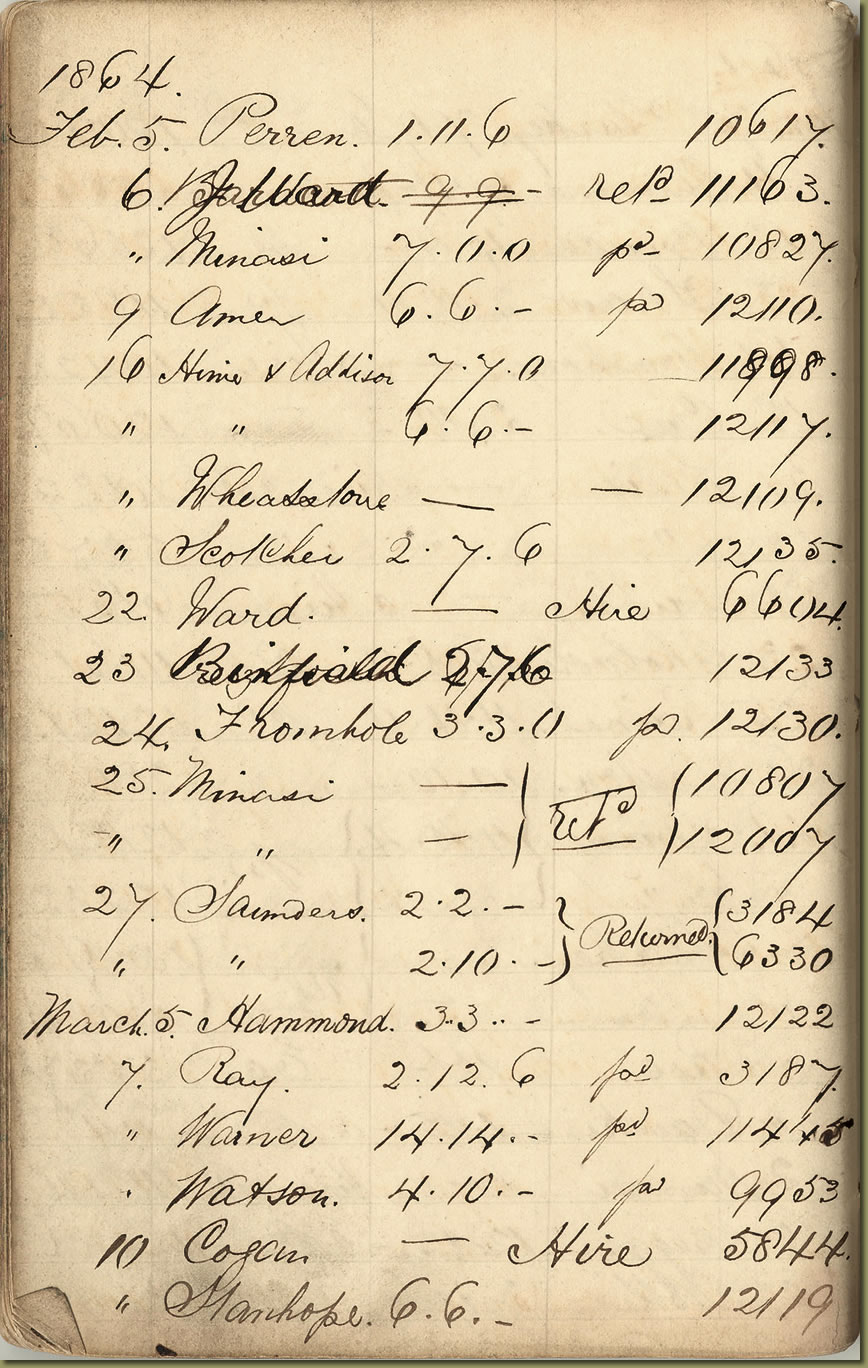 1864.
Feb. 5. Perren. 1.11.6 10617.
6. 9.9.- retd 11163.
" Minasi 7.0.0 pd- 10827.
9 Amen 6.6.- pd 12110.
16 Hime & Addison 7.7.0 11898.
" " 6.6.- 12117.
" Wheatstone — — 12109.
" Scotcher 2.7.6 12135.
22. Ward. — Hire 6604.
23 12133
24. Fromhole 3.3.0 pd. 12130.
25. Minasi — 10807
" " — retd 12007
27. Saunders. 2.2.- 3184
" " 2.10.- Returned. 6330
March. 5. Hammond. 3.3..- 12122
7. Ray. 2.12.6 pd 3187.
" Warner 14.14.- pd 11445
. Watson. 4.10.- pd 9953
10 Cogan — Hire 5844.
" Stanhope. 6.6.- 12119